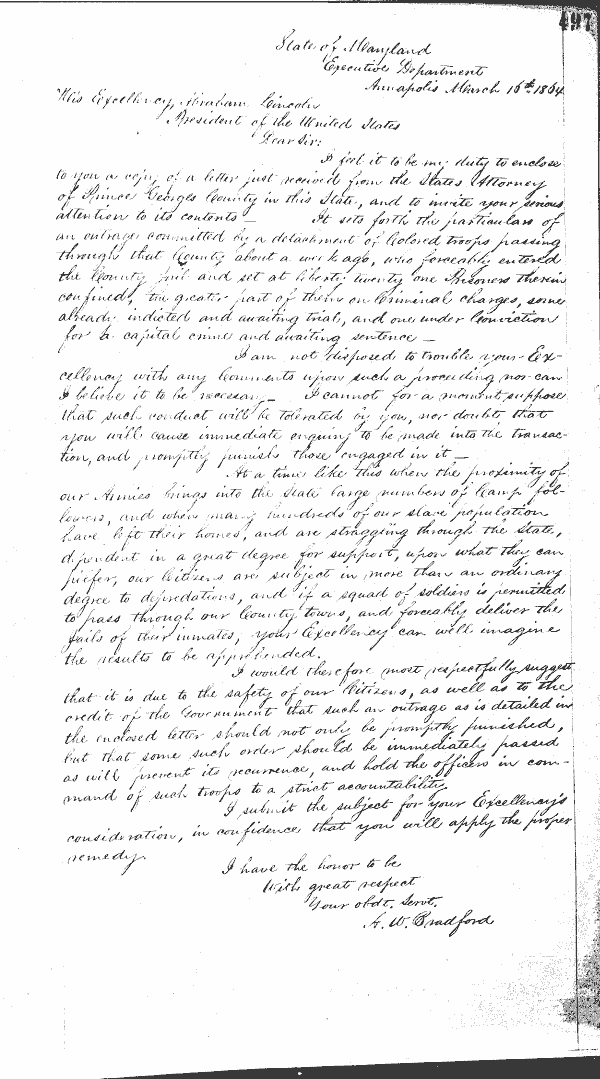 497
State of Maryland
Executive Department
Annapolis March 16th 1864
His Excellency, Abraham Lincoln
President of the United States
Dear Sir:
I feel it to be my duty to enclose
to you a copy of a letter just received from the States Attorney
of Prince Georges County in this State, and to invite your serious
attention to its contents — It sets forth the particulars of
an outrage committed by a detachment of Colored troops passing
through that County about a week ago, who forceably entered
the County jail and set at liberty twenty one Prisoners therein
confined, the greater part of them on Criminal charges, some
already indicted and awaiting trial, and one under Conviction
for a capital crime and awaiting sentence —
I am not disposed to trouble your Ex-
cellency with any Comments upon such a proceeding nor can
I believe it to be necessary — I cannot for a moment suppose
that such conduct will be tolerated by you, nor doubt that
you will cause immediate enquiry to be made into the transac-
tion, and promptly punish those engaged in it —
At a time like this when the proximity of
our Armies brings into the State large numbers of Camp fol-
lowers, and when many hundreds of our slave population
have left their homes, and are straggling through the State,
dependent in a great degree for support, upon what they can
pilfer, our Citizens are subject in more than an ordinary
degree to depredations, and if a squad of soldiers is permitted
to pass through our County towns, and forceably deliver the
jails of their inmates, your Excellency can well imagine
the results to be apprehended.
I would therefore most respectfully suggest
that it is due to the safety of our Citizens, as well as to the
credit of the Government that such an outrage as is detailed in
the enclosed letter should not only be promptly punished,
but that some such order should be immediately passed
as will prevent its recurrence, and hold the officers in com-
mand of such troops to a strict accountability.
I submit the subject for your Excellency's
consideration, in confidence that you will apply the proper
remedy.
I have the honor to be
With great respect
Your obdt. Servt.
A. W. Bradford